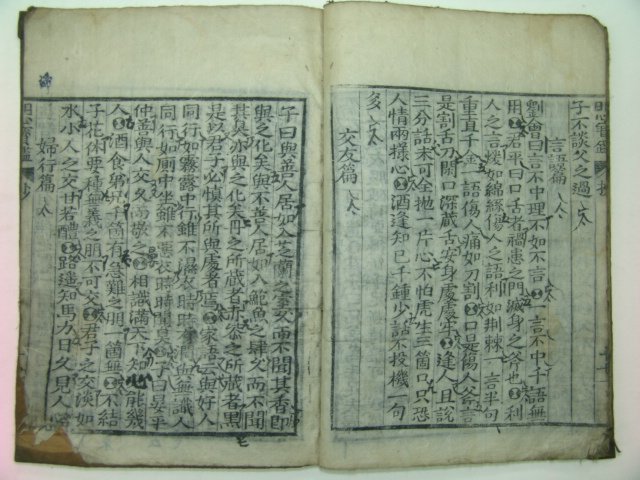 明心寶鑑 抄
子不談父之過
言語篇
劉會曰言不中理不如不言○一言不中千語無
用○君平曰口舌者禍患之門滅身之斧也○利
人之言煖如綿絮傷人之語利如荊棘一言半句
重直千金一語傷人痛如刀割○口是傷人斧言
是割舌刀閉口深藏舌安身處處牢○逢人且說
三分話未可全抛一片心不怕虎生三箇口只恐
人情兩樣心○酒逢知己千鍾少話不投機一句
多
交友篇
子曰與善人居如入芝蘭之室久而不聞其香即
與之化矣與不善人居如入鮑魚之肆久而不聞
其臭亦與之化矣丹之所藏者赤漆之所藏者黑
是以君子必慎其所與處者焉○家語云與好人
同行如霧露中行雖不濕衣時時有潤與無識人
同行如厠中坐雖不汚衣時時聞臭○子曰晏平
仲善與人交久而敬之○相識滿天下知心能幾
人○酒食兄弟千箇有急難之朋一箇無○不結
子花休要種無義之朋不可交○君子之交淡如
水小人之交甘若醴○路遙知馬力日久見人心
婦行篇
明心寶鑑 抄